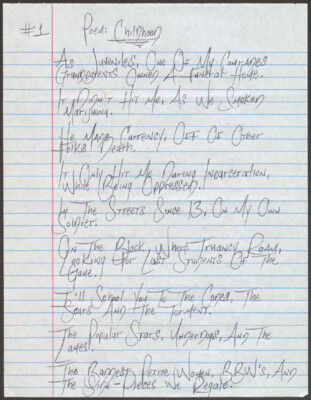 #1 Poem: Childhood
As Juveniles, One Of My Comrades
Grandparents Owned A Funeral Home.
It Didn't Hit Me, As We Smoked
Marijuana.
He Made Currency, Off Of Other
Folks Death.
It Only Hit Me During Incarceration,
While Being Oppressed.
In The Streets Since 13, On My Own
Soldier.
On The Block, Where Truancy Roam,
Looking For Lost Students Of The
Game.
I'll School You To The Codes, The
Scars And The Torment.
The Popular Stars, Underdogs, And The
Lames!
The Baddest Petite Women, BBW's, And
The Side-Pieces We Regale.